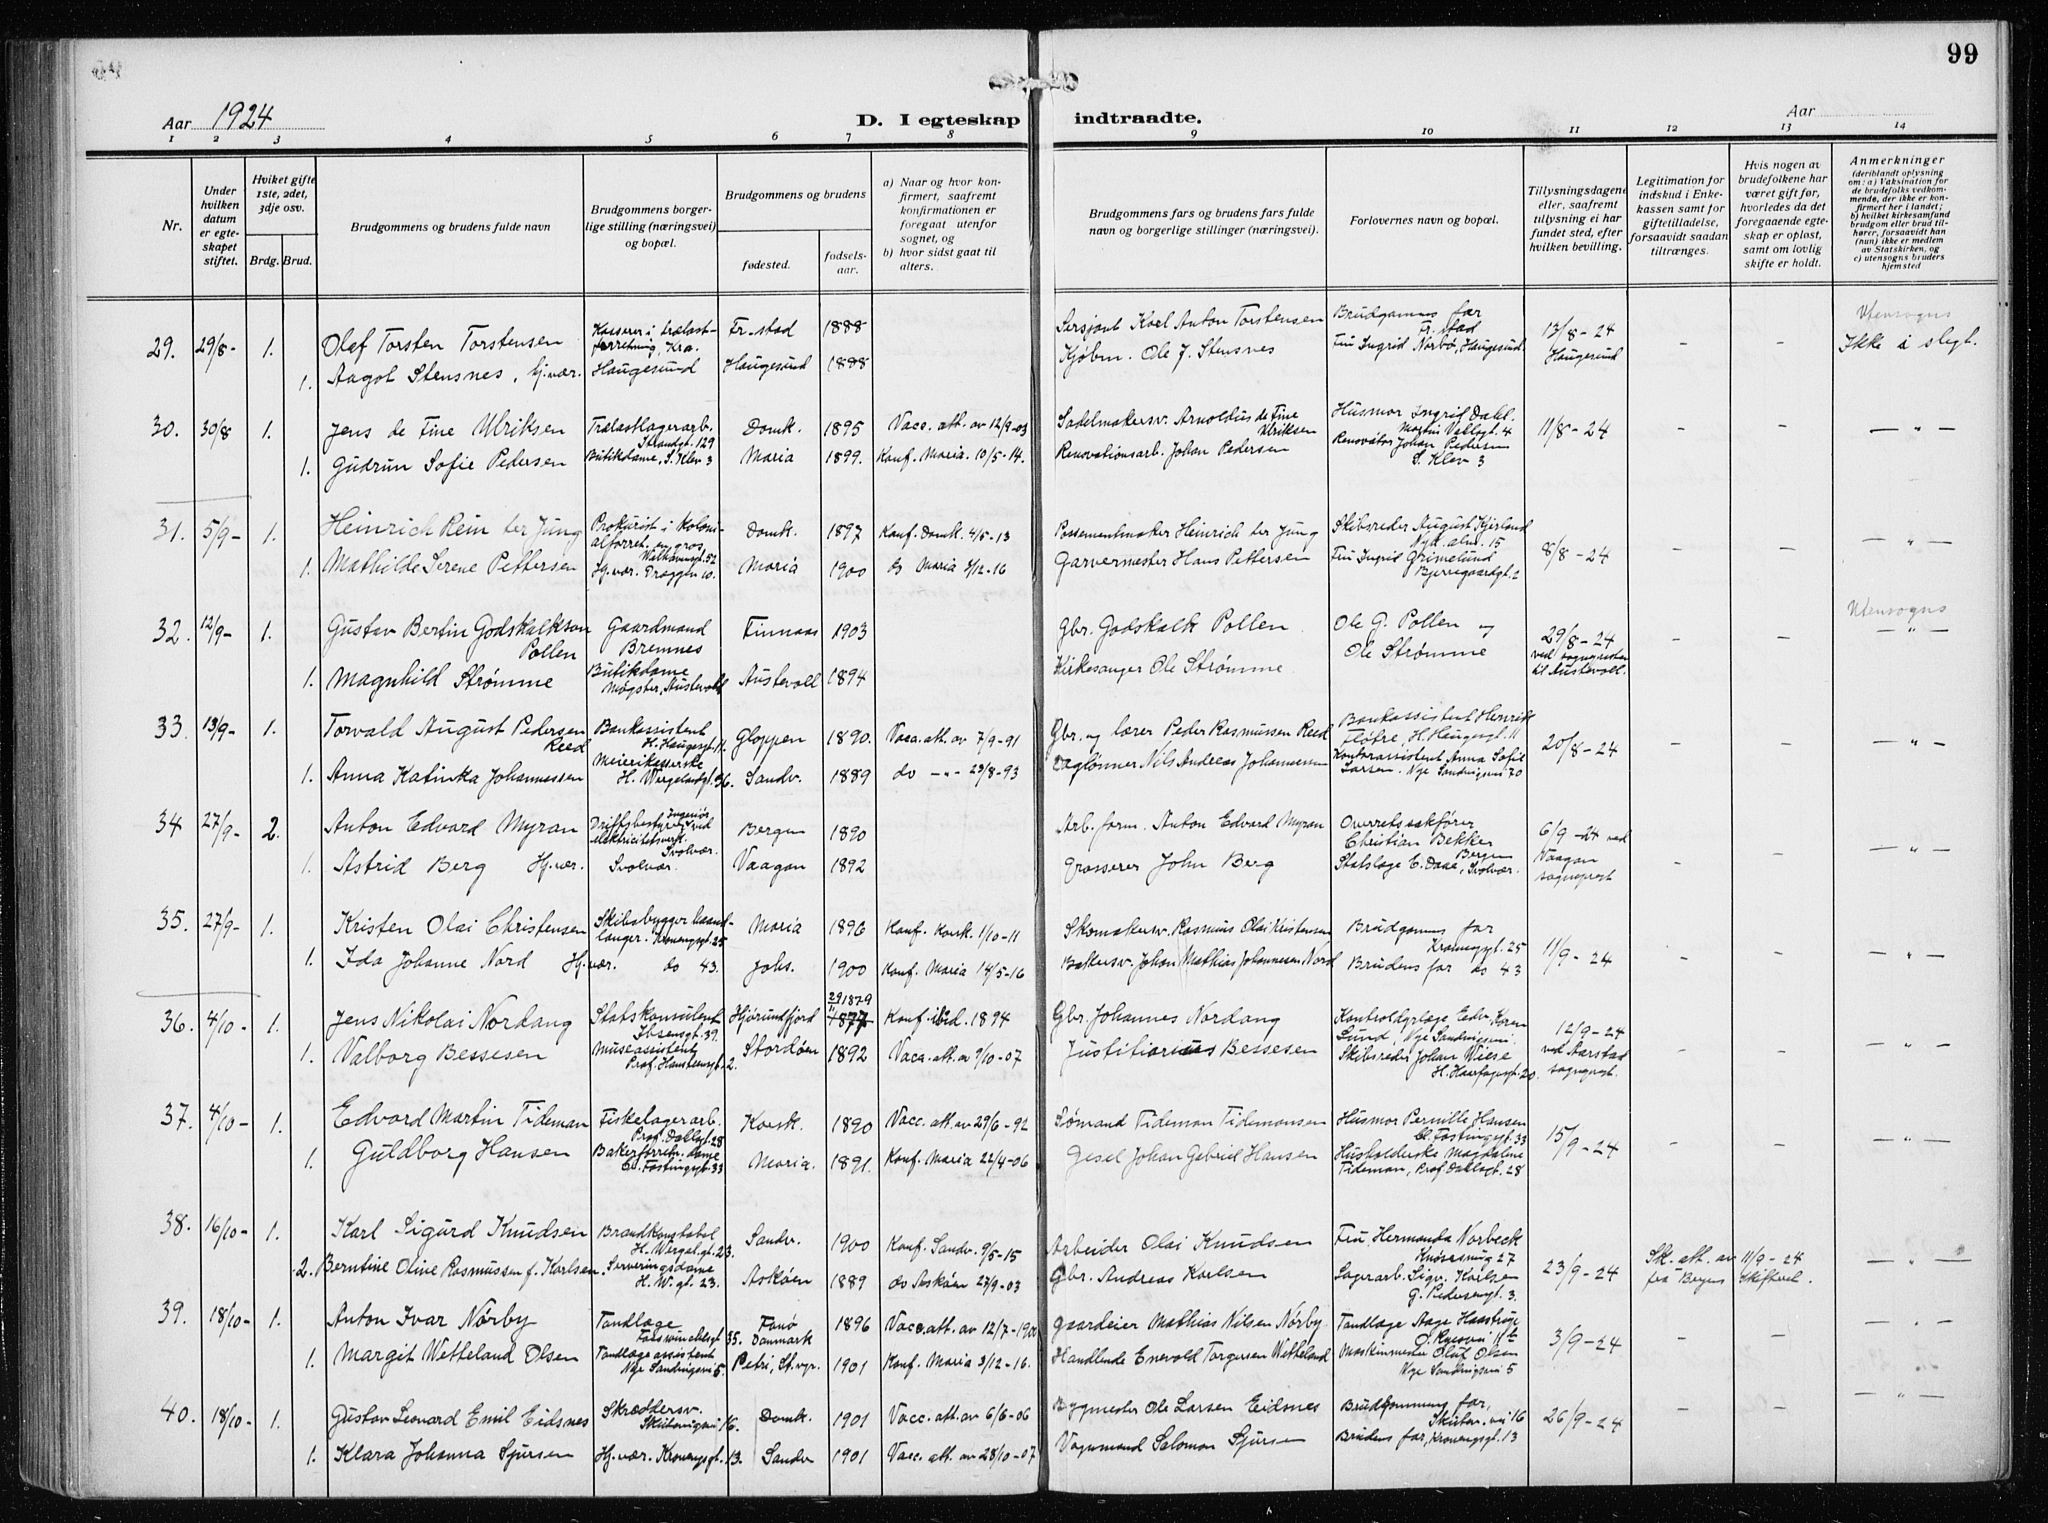 99
Aar 1924
D. I egteskap indtraadte.
Aar
1 2 3 4 5 6 7 8 9 10 11 12 13 14
Nr.
Under hvilken datum er egteskapet stiftet.
Hviket gifte 1ste, 2det, 3dje osv.
Brdg. Brud.
Brudgommens og brudens fulde navn
Brudgommens borgerlige stilling (næringsvei) og bopæl.
Brudgommens og brudens
fødested.
fødselsaar.
a) Naar og hvor konfirmert, saafremt konfirmationen er foregaat utenfor sognet, og
b) hvor sidst gaat til alters.
Brudgommens fars og brudens fars fulde navn og borgerlige stillinger (næringsvei).
Forlovernes navn og bopæl.
Tillysningsdagene eller, saafremt tillysning ei har fundet sted, efter hvilken bevilling.
Legitimation for indskud i Enkekassen samt for giftetilladelse, forsaavidt saadan tiltrænges.
Hvis nogen av brudefolkene har været gift før, hvorledes da det foregaaende egteskap er opløst, samt om lovlig skifte er holdt.
Anmerkninger (deriblandt oplysning om: a) Vaksination for de brudefolks vedkommende, der ikke er konfirmert her i landet; b) hvilket kirkesamfund brudgom eller brud tilhører, forsaavidt han (hun) ikke er medlem av Statskirken, og c) utensogns bruders hjemsted
29. 29/8- 1. Olef Torsten Torstensen Kasserer i trælastforretning, Kra. Fr.stad 1888 Sersjant Karl Anton Torstensen Brudgommens far Fr.stad 13/8-24 Haugesund - - Utensogns Ikke i slegt.
1. Aagot Stensnes, hj.vær. Haugesund Haugesund 1888 Kjøbm. Ole J. Stensnes Fru Ingrid Norbø, Haugesund.
30. 30/8 1. Jens de Fine Ulriksen Trælastlagerarb. Strandgt. 129 Domk. 1895 Vacc. att. av 12/9-03 Sadelmakersv. Arnoldus de Fine Ulriksen Husmor Ingrid Dahl. Martin Vahlsgt. 4 11/8-24 - - - " -
1. Gudrun Sofie Pedersen Butikdame, S. Klev 3 Maria 1899. Konf. Maria. 10/5-14. Renovationsarb. Johan Pedersen Renovatør Johan Pedersen S. Klev 3
31. 5/9- 1. Heinrich Rein ter Jung Prokurist i Kolonialforret. en gros Domk. 1897 Konf. Domk. 4/5-13 Possementmaker Heinrich ter Jung Skibsreder August Kjerland Nyg. alm. 15 8/8-24 - - - " -
1. Mathilde Serene Pettersen Hj.vær. Dræggen 10. Maria 1900 do Maria 3/12-16 Garvermester Hans Pettersen Fru Ingrid Grimelund Bjerregaardsgt. 2
32. 12/9- 1. Gustav Bertin Godskalkson Pollen Gaardmand Bremnes Finnaas 1903 Gbr. Godskalk Pollen Ole G. Pollen og 29/8-24 ved sognepresten til Austevoll. - - Utensogns - " -
1. Magnhild Strømme Butikdame Møgster, Austevold Austevoll 1894 Kirkesanger Ole Strømme Ole Strømme
33. 13/9- 1. Torvald August Pedersen Reed Bankassistent H. Haugesgt. 11. Gloppen 1890. Vacc. att. av 7/9-91 Gbr. og lærer Peder Rasmussen Reed Bankassistent Henrik Fløtre, H. Haugesgt. 11 20/8-24 - - - " -
1. Anna Katinka Johannessen Meierikasserske H. Wergelandsgt. 36. Sandv. 1889 do - " - 23/8-93 Daglønner Nils Andreas Johannessen Kontorassistent Anna Sofie Larsen. Nye Sandviksvei 70
34 27/9- 2. Anton Edvard Myran Ingeniør Driftsbestyrer ved elektricitetsverk. Svolvær. Bergen 1890 Arb. form. Anton Edvard Myran Overretssakfører Christian Bekker Bergen 6/9-24 ved Vaagan sogneprest - - - " -
1. Astrid Berg Hj.vær. Svolvær. Vaagan 1892 Grosserer John Berg Statslæge E. Daae, Svolvær.
35. 27/9- 1. Kristen Olai Christensen Skibsbygger haandlanger. Kronengsgt. 25 Maria 1896 Konf. Korsk. 1/10-11 Skomakersv. Rasmus Olai Kristensen Brudgommens far Kronengsgt. 25 11/9-24 - - - " -
1. Ida Johanne Nord Hj.vær. do 43. Johs. 1900 Konf. Maria 14/5-16 Bakkersv. Johan Mathias Johannesen Nord Brudens far do 43
36. 4/10- 1. Jens Nikolai Nordang Statskonsulent Ibsensgt. 39. Hjørundfjord 29/11 1879 1877 Konf. ibid. 1894 Gbr. Johannes Nordang Kontroldyrlæge Edv. Koren Lund, Nye Sandviksvei. 12/9-24 ved Aarstad sogneprst. - - - " -
1. Valborg Bessesen Museassistent Prof. Hansteensgt. 2. Stordøen 1892 Vacc. att. av 9/10-07 Justitiarius Bessesen Skibsreder Johan Wiese H. Haarfagresgt. 20.
37. 4/10- 1. Edvard Martin Tideman Fiskelagerarb. Prof. Dahlsgt. 28 Korsk. 1890 Vacc. att. av 29/6-92 Sømand Tideman Tidemansen Husmor Pernille Hansen Cl. Fastingsgt. 33 15/9-24 - - - " -
1. Guldborg Hansen Bakerforretn. dame Cl. Fastingsgt. 33 Maria. 1891. Konf. Maria 22/4-06 Gesel Johan Gabriel Hansen Husholderske Magdaline Tideman, Prof. Dahlsgt. 28
38. 16/10- 1. Karl Sigurd Knudsen Brandkonstabel H. Wergel. gt. 23. Sandv. 1900 Konf. Sandv. 9/5-15 Arbeider Olai Knudsen Fru Hermanda Norbeck Knøsesmug 27 23/9-24 Sk. att. av 11/9-24 fra Bergens Skifteret. - " -
2. Berntine Oline Rasmussen f. Karlsen. Serveringsdame H. W. gt. 23. Askøen 1889 do Askøen 27/9-03 Gbr. Andreas Karlsen Lagerarb. Sigv. Karlsen G. Pedersengt. 3.
39. 18/10- 1. Anton Ivar Nørby Tandlæge Forswinckelsgt 35. Fanø Danmark 1896 Vacc. att. av 12/7-1900 Gaardeier Mathias Nilsen Nørby Tandlæge Aage Haastrup 3/9-24 - - - " -
1. Margit Wetteland Olsen Tandlægeassistent Nye Sandviksvei 5. Petri, St.vgr. 1901 Konf. Maria 3/12-16. Handlende Enevold Torgersen Wetteland Maskinmester Oluf Olsen Nye Sandviksvei 5
40. 18/10- 1. Gustav Leonard Emil Eidsnes Skræddersv. Skutevigsvei 16. Domk. 1901 Vacc. att. av 6/6-06 Bygmester Ole Larsen Eidsnes Brudgommens far, Skutev. vei 16 26/9-24 - - - " -
1. Klara Johanna Sjursen Hj.vær. Kronengsgt. 13. Sandv 1901 Vacc. att. av 28/10-07 Vognmand Salomon Sjursen Brudens far, Kronengsgt. 13